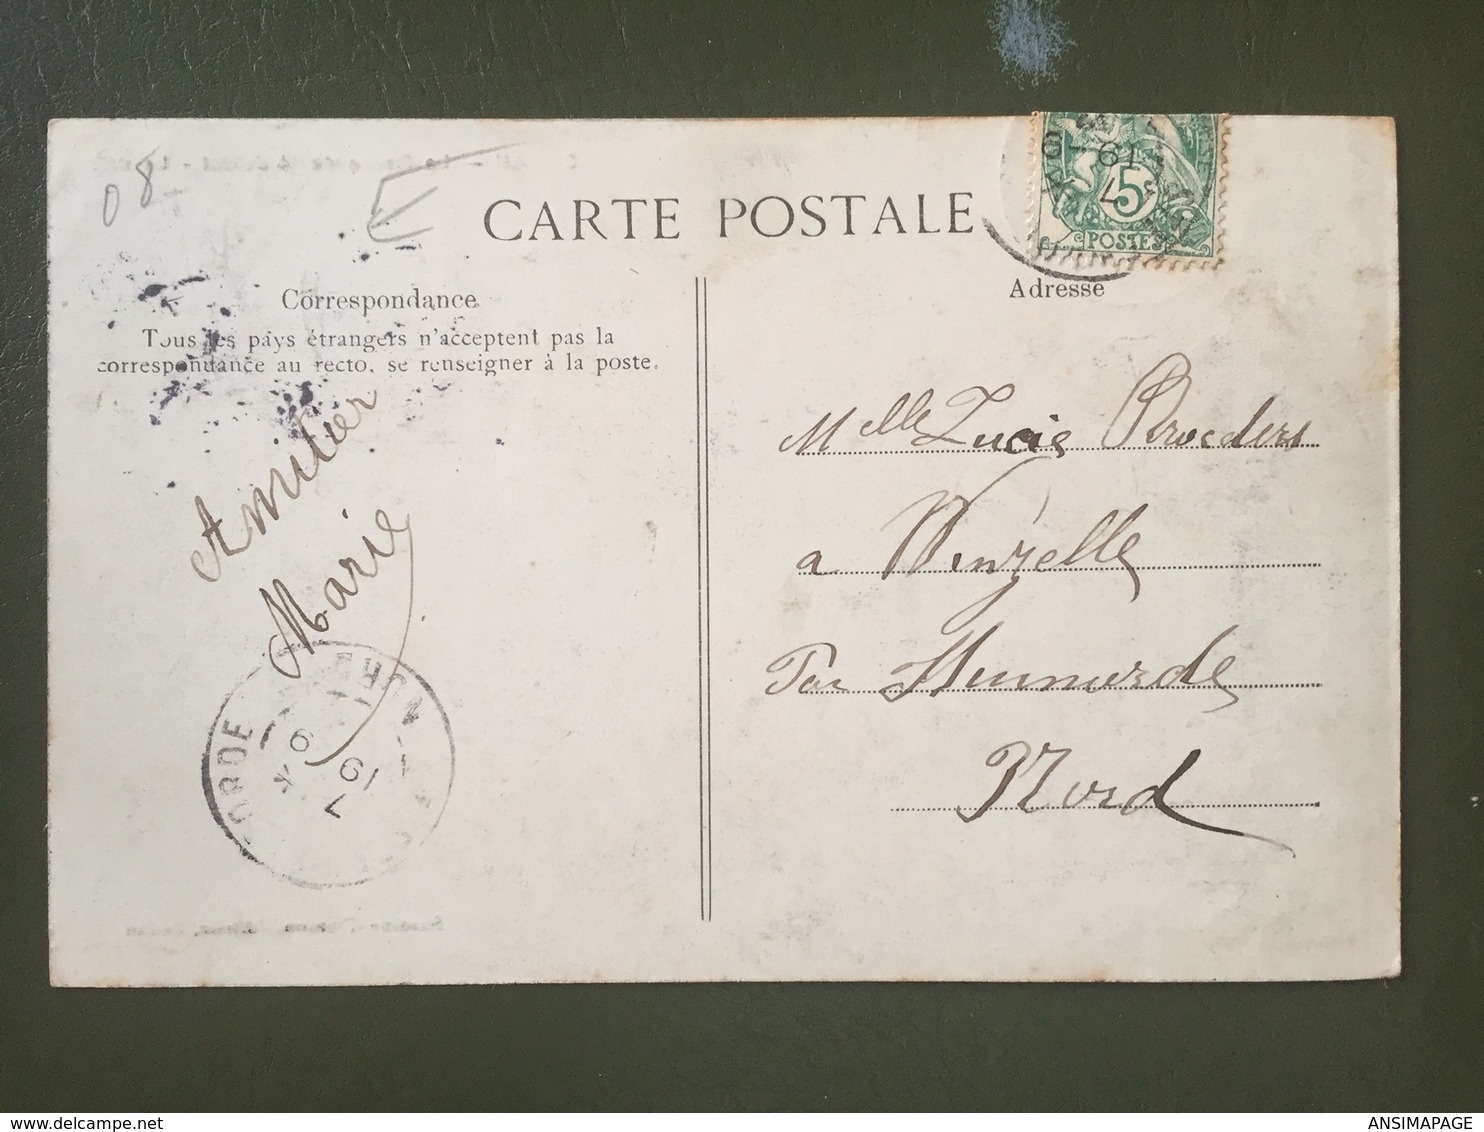 08
E
CARTE POSTALE
5
POSTES
Correspondance
Tous les pays étrangers n'acceptent pas la
correspondance au recto, se renseigner à la poste.
Adresse
Amitier
Marie
Melle Lucie Broeders
a Winzelle
Par
Nord
19
7
delcampe.net
ANSIMAPAGE